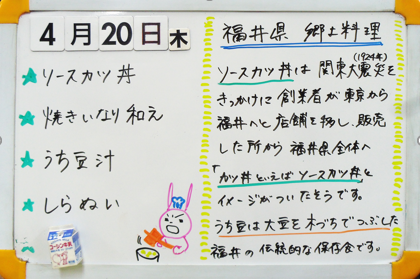 4月20日木
ソースカツ丼
焼きいなり和え
うち豆汁
しらぬい
福井県 郷土料理
(1924年)
ソースカツ丼は 関東大震災を
きっかけに 創業者が東京から
福井へと店舗を移し、販売
した所から 福井県全体へ
「カツ丼といえばソースカツ丼」と
イメージがついたそうです。
うち豆は大豆を木づちでつぶした
福井の伝統的な保存食です。